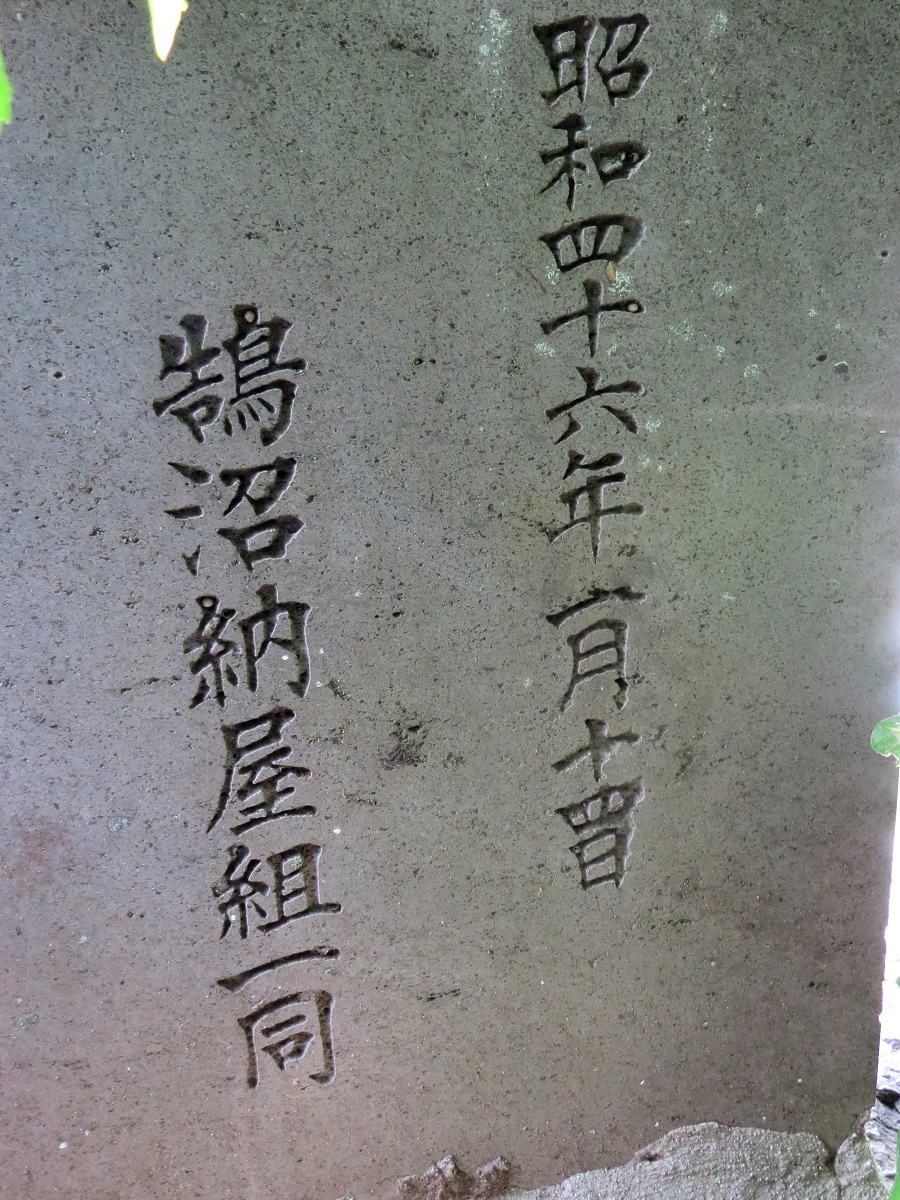 昭和四十六年二月十四日
鵠沼納屋組一同